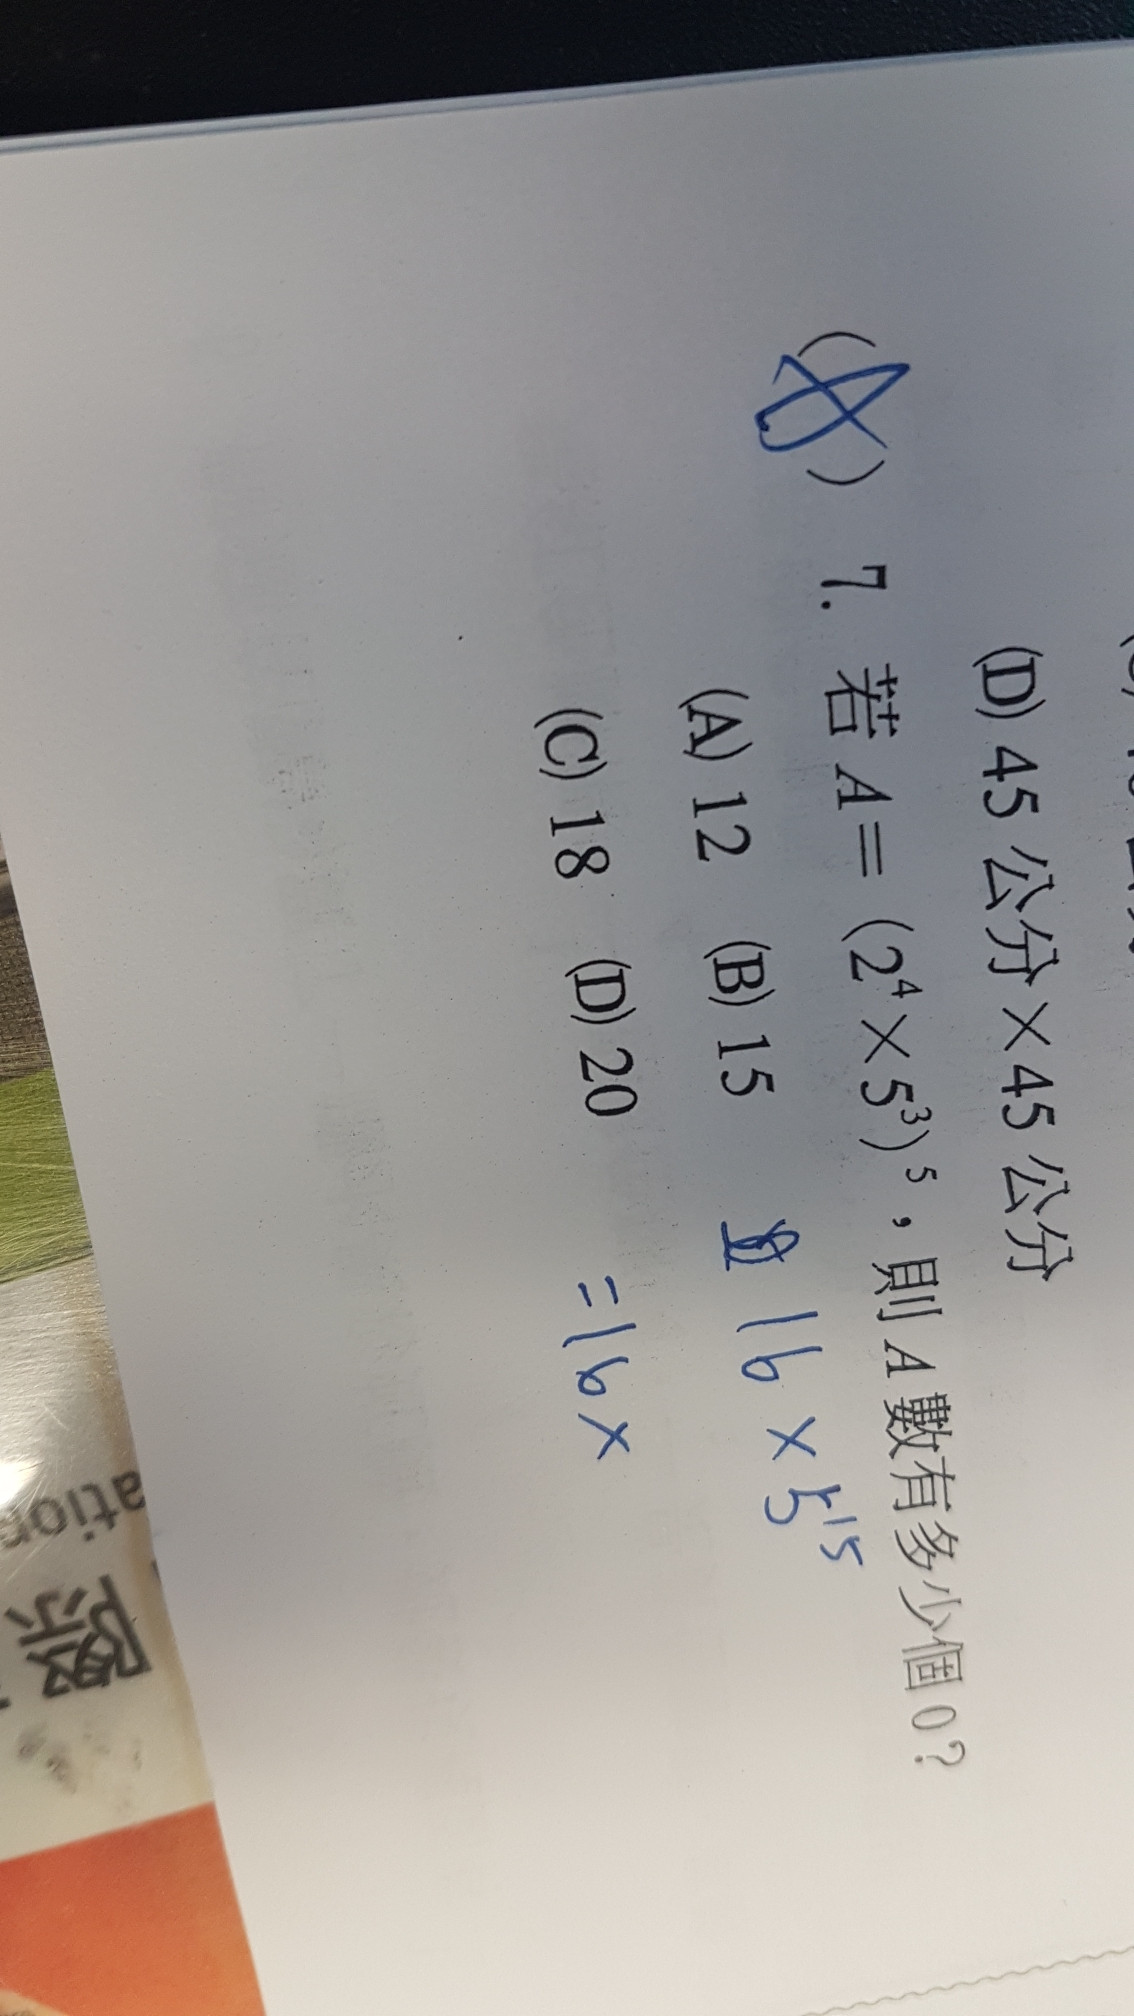 (D) 45 公分×45 公分
( ) 7. 若 A＝(2⁴×5³)⁵，則 A 數有多少個 0？
(A) 12 (B) 15
16 × 5¹⁵
(C) 18 (D) 20
=16×
ation
際